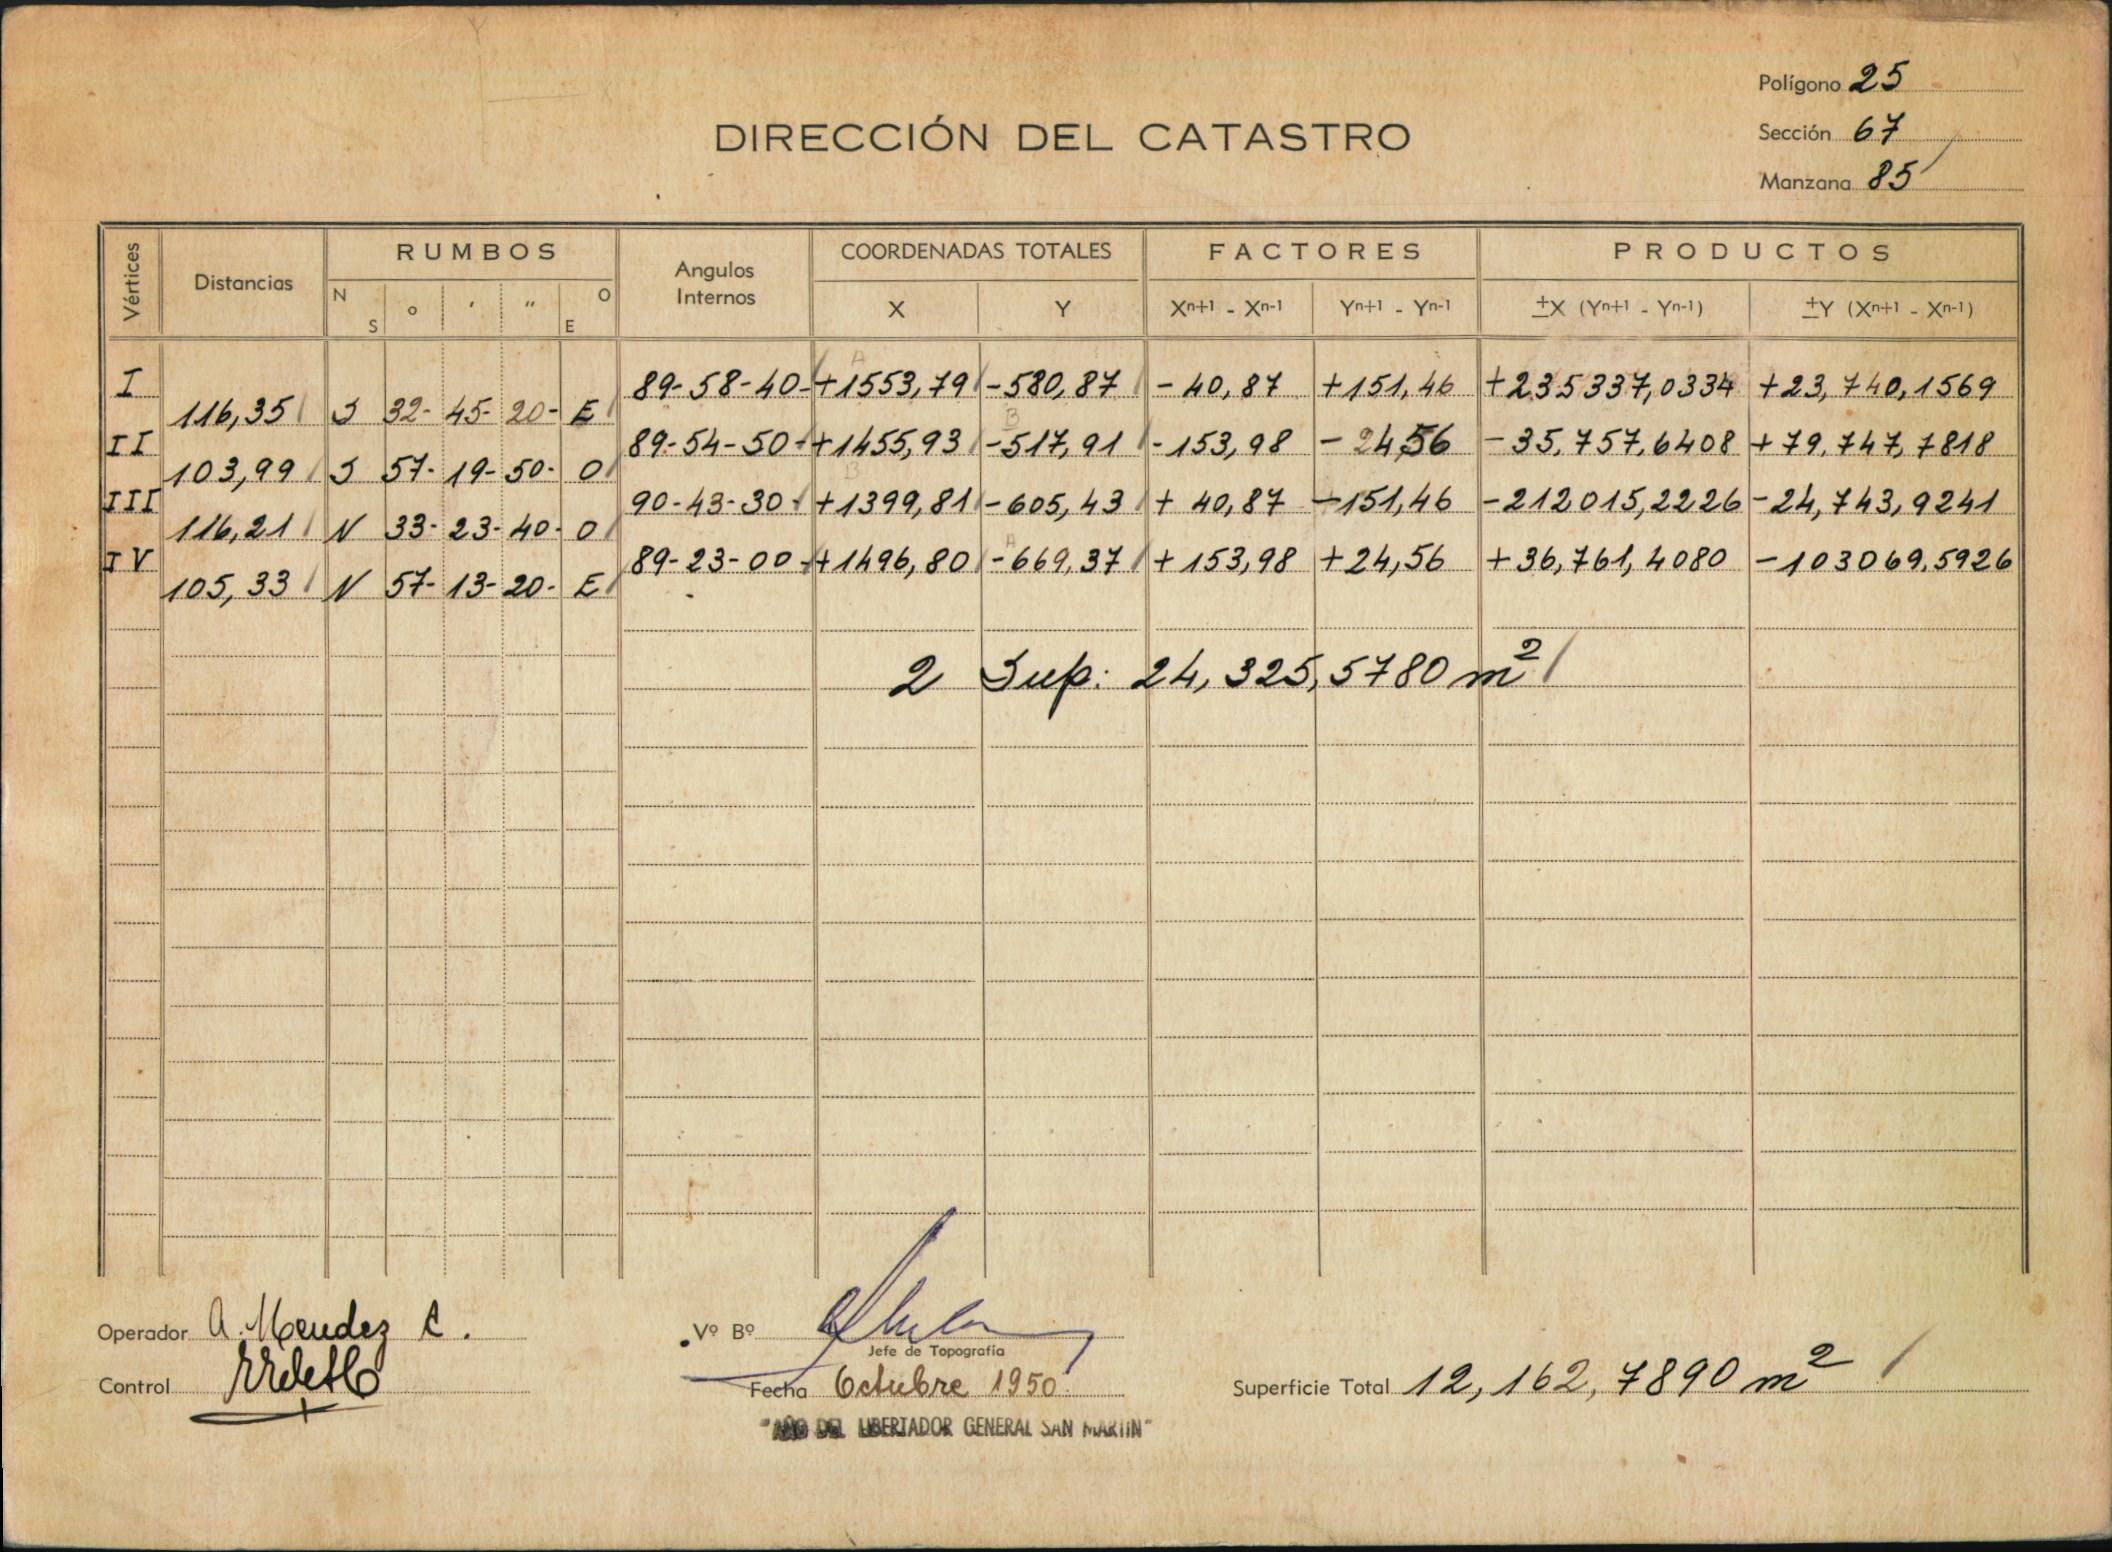 Polígono 25
Sección 67
Manzana 85
DIRECCIÓN DEL CATASTRO
Vértices Distancias RUMBOS Angulos Internos COORDENADAS TOTALES FACTORES PRODUCTOS
N S ° ′ ″ O E X Y Xn+1 - Xn-1 Yn+1 - Yn-1 ±X (Yn+1 - Yn-1) ±Y (Xn+1 - Xn-1)
I 89-58-40- +1553,79 -580,87 - 40,87 +151,46 +235337,0334 +23,740,1569
116,35 S 32- 45- 20- E
II 89-54-50- +1455,93 -517,91 -153,98 - 24,56 -35.757,6408 +79.747,7818
103,99 S 57- 19- 50- O
III 90-43-30- +1399,81 -605,43 + 40,87 -151,46 -212015,2226 -24,743,9241
116,21 N 33- 23- 40- O
IV 89-23-00- +1496,80 -669,37 +153,98 +24,56 +36,761,4080 -103069,5926
105,33 N 57- 13- 20- E
2 Sup: 24,325,5780 m²
Operador A. Mendez C.
Control
Vº Bº
Jefe de Topografía
Fecha Octubre 1950.
Superficie Total 12,162,7890 m²
"AÑO DEL LIBERTADOR GENERAL SAN MARTIN"